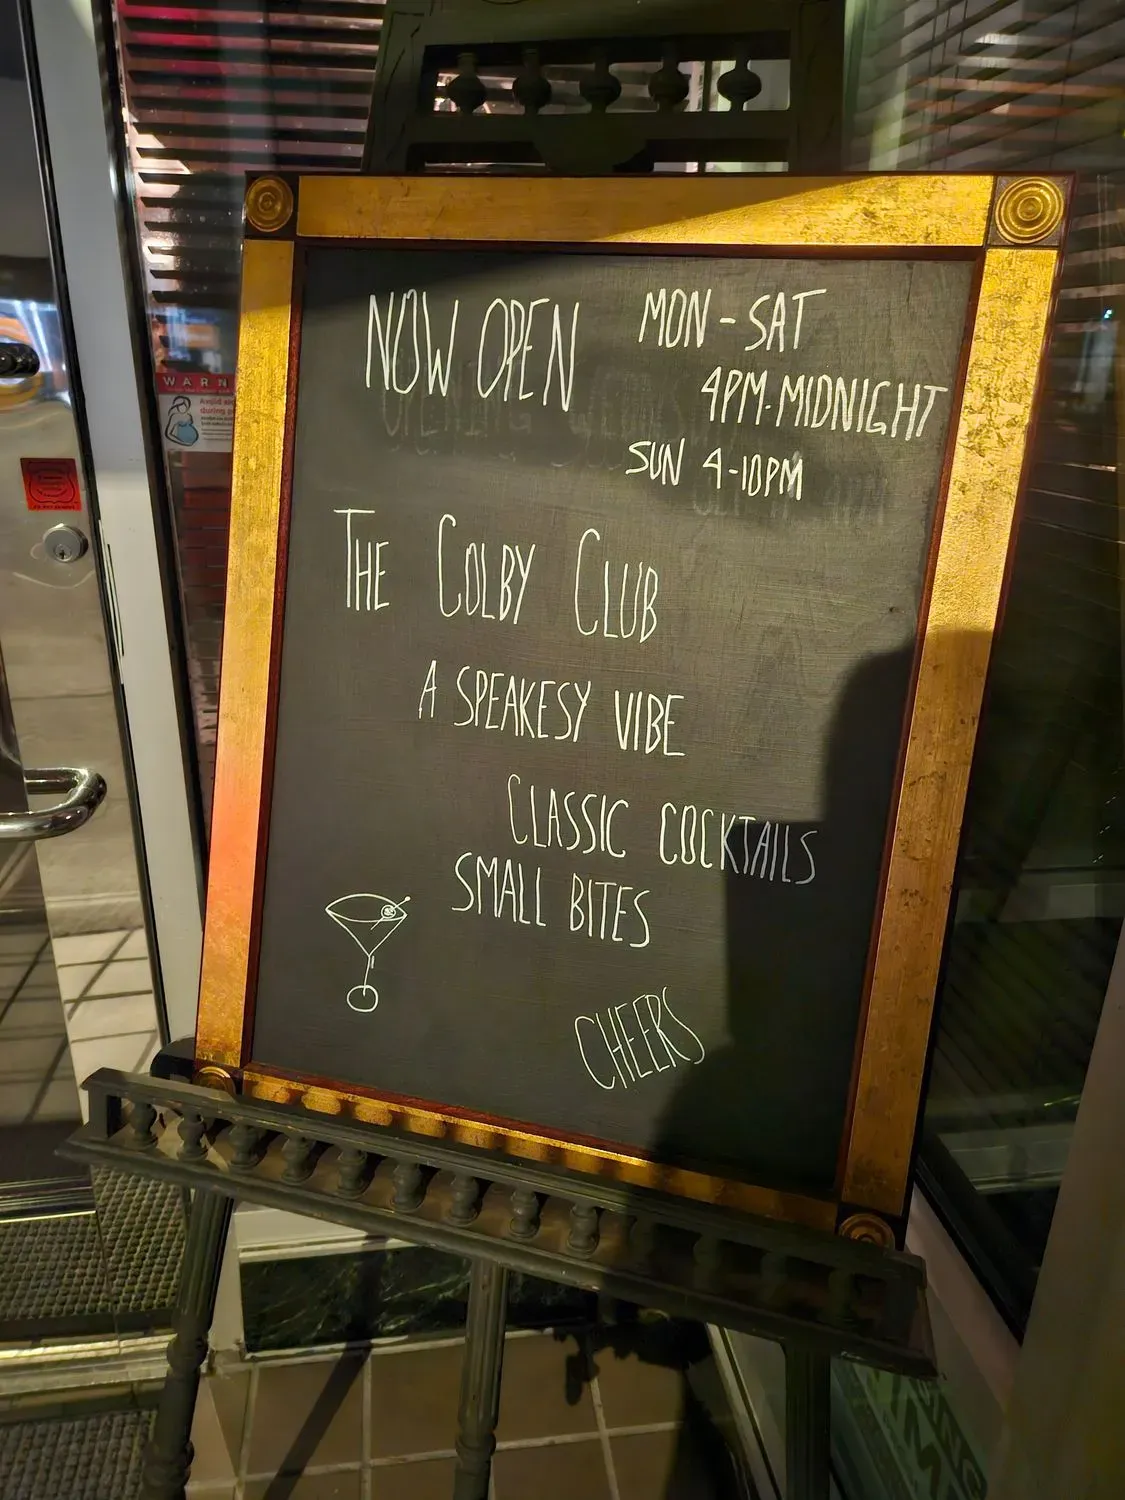 NOW OPEN
MON - SAT
4PM-MIDNIGHT
SUN 4-10PM
THE COLBY CLUB
A SPEAKESY VIBE
CLASSIC COCKTAILS
SMALL BITES
CHEERS
WARN